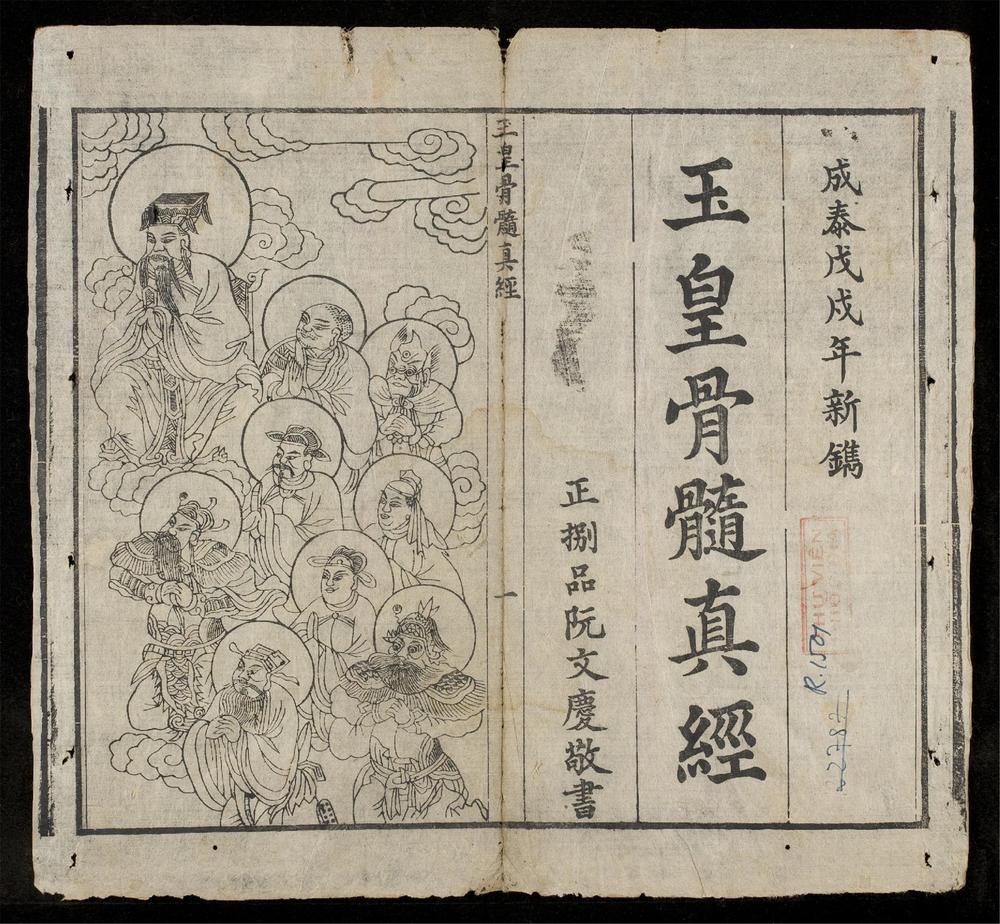 成泰戊戌年新鐫
玉皇骨髓真經
正捌品阮文慶敬書
玉皇骨髓真經
一
THƯ VIỆN
R.1501